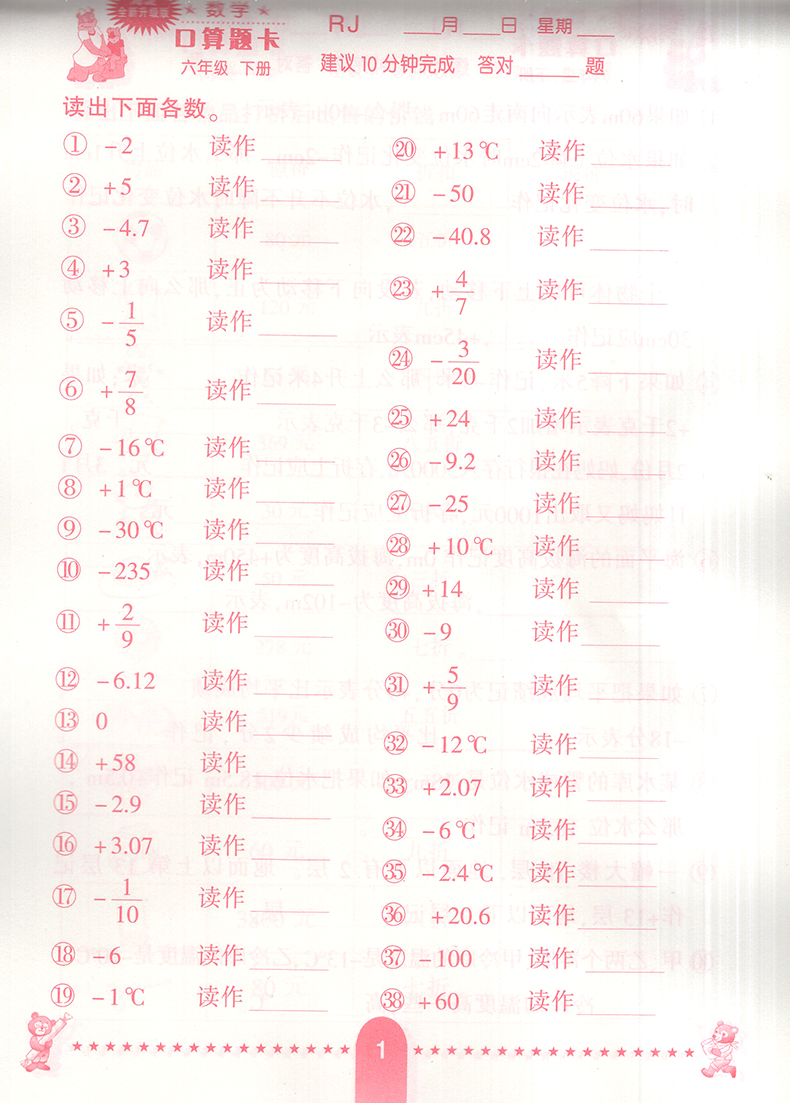 全新升级版
★ 数学 ★
口算题卡
六年级 下册
RJ ____月____日 星期____
建议10分钟完成 答对______题
读出下面各数。
① -2 读作______
② +5 读作______
③ -4.7 读作______
④ +3 读作______
⑤ -1/5 读作______
⑥ +7/8 读作______
⑦ -16℃ 读作______
⑧ +1℃ 读作______
⑨ -30℃ 读作______
⑩ -235 读作______
⑪ +2/9 读作______
⑫ -6.12 读作______
⑬ 0 读作______
⑭ +58 读作______
⑮ -2.9 读作______
⑯ +3.07 读作______
⑰ -1/10 读作______
⑱ -6 读作______
⑲ -1℃ 读作______
⑳ +13℃ 读作______
㉑ -50 读作______
㉒ -40.8 读作______
㉓ +4/7 读作______
㉔ -3/20 读作______
㉕ +24 读作______
㉖ -9.2 读作______
㉗ -25 读作______
㉘ +10℃ 读作______
㉙ +14 读作______
㉚ -9 读作______
㉛ +5/9 读作______
㉜ -12℃ 读作______
㉝ +2.07 读作______
㉞ -6℃ 读作______
㉟ -2.4℃ 读作______
㊱ +20.6 读作______
㊲ -100 读作______
㊳ +60 读作______
1